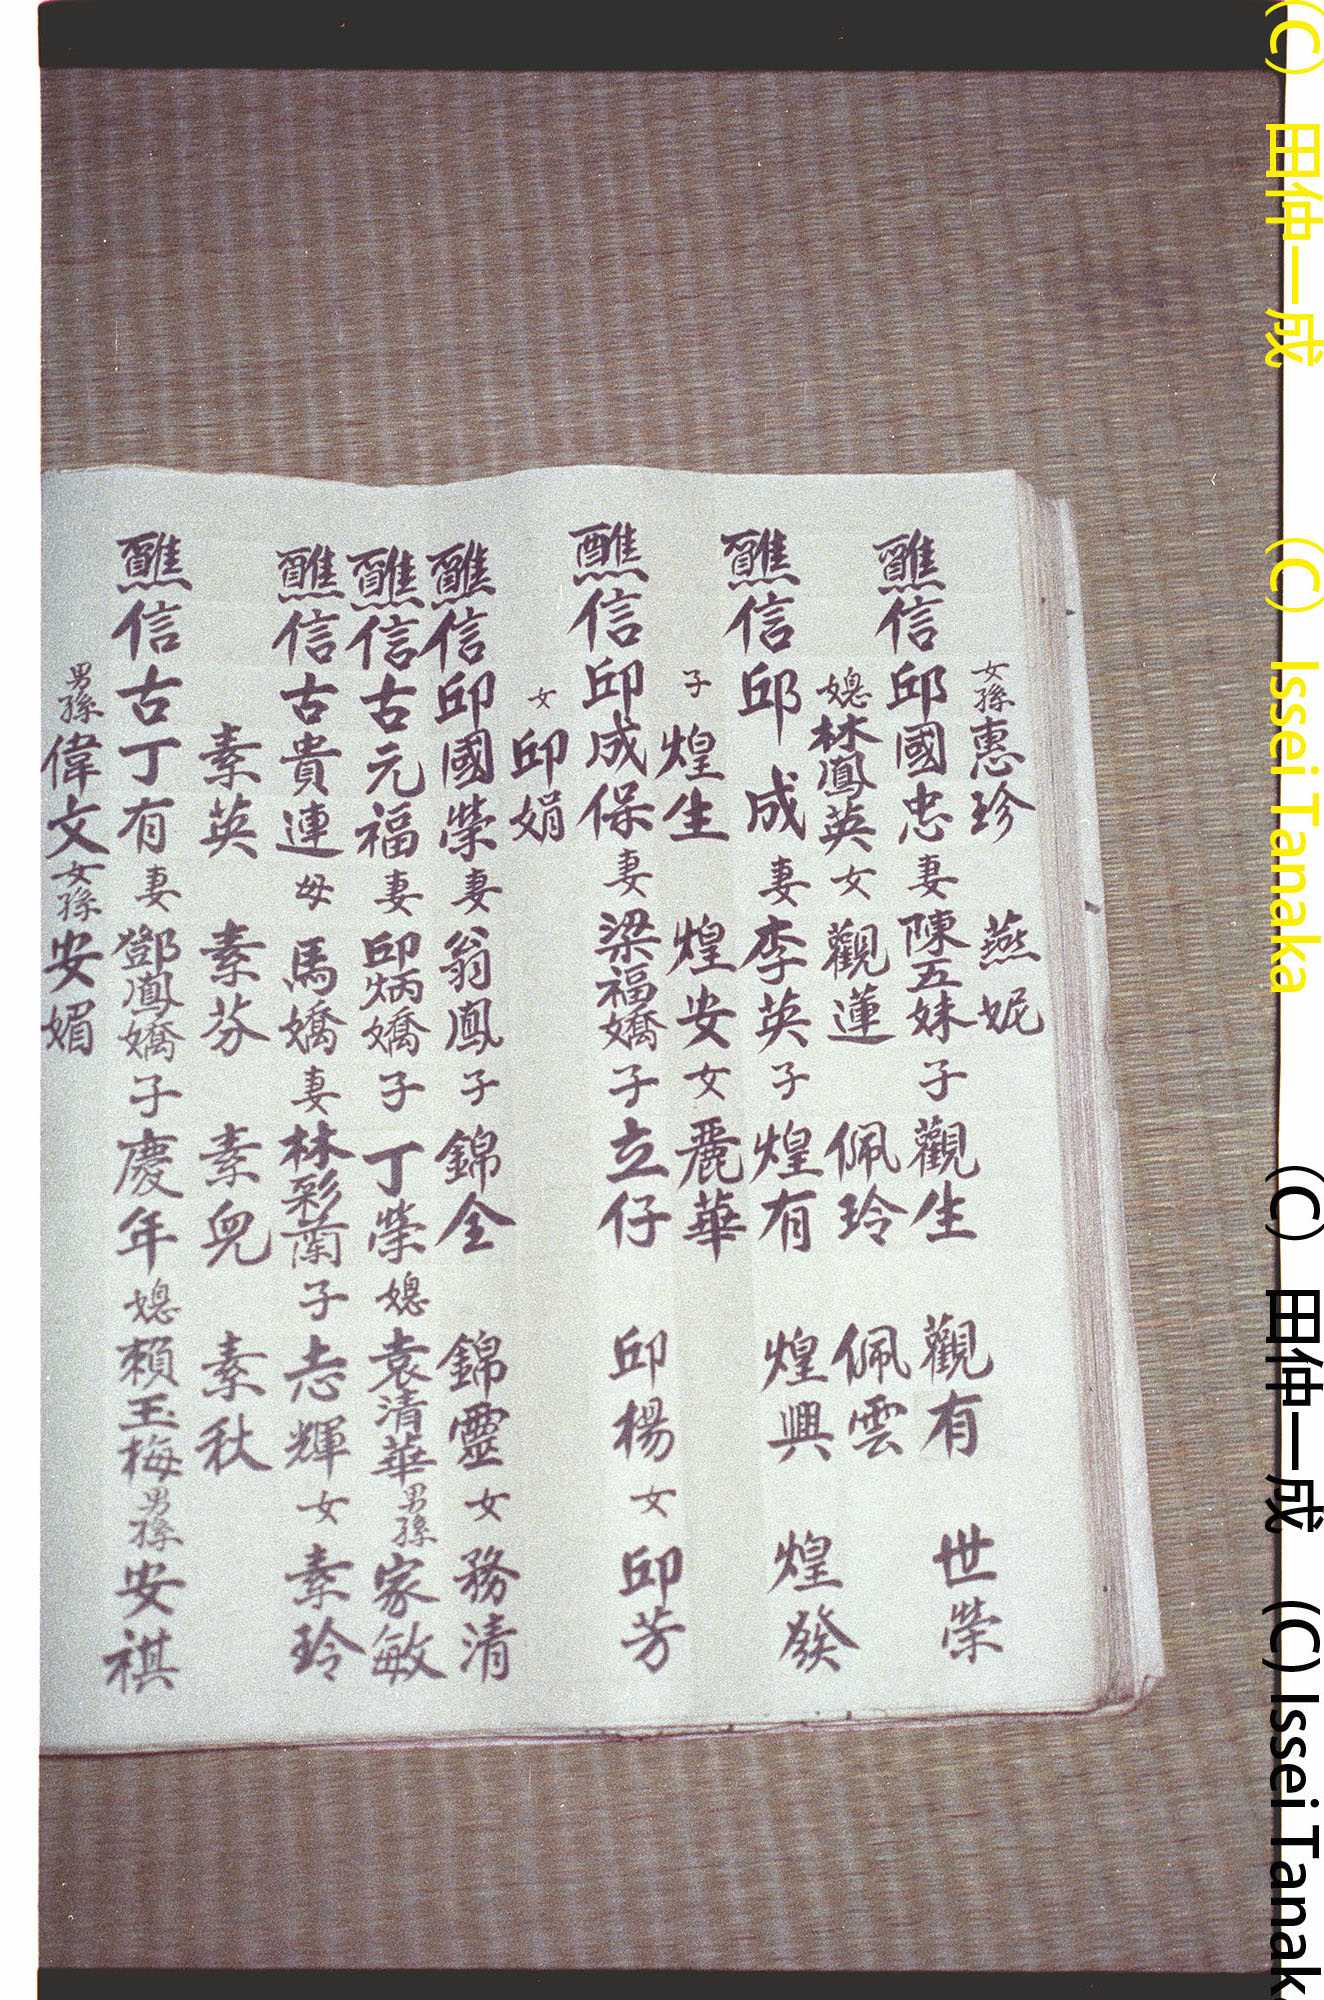 女孫惠珍 燕妮
醮信邱國忠妻陳五妹子觀生 觀有 世榮
媳林鳳英女觀蓮 佩玲 佩雲
醮信邱成妻李英子煌有 煌興 煌發
子煌生 煌安女麗華
醮信邱成保妻梁福嬌子立仔 邱楊女邱芳
女邱娟
醮信邱國榮妻翁鳳子錦全 錦靈女務清
醮信古元福妻邱炳嬌子丁榮媳袁清華男孫家敏
醮信古貴連母馬嬌妻林彩蘭子志輝女素玲
素英 素芬 素兒 素秋
醮信古丁有妻鄧鳳嬌子慶年媳賴玉梅男孫安祺
男孫偉文女孫安媚
(C) 田仲一成 (C) Issei Tanaka
(C) 田仲一成 (C) Issei Tanak